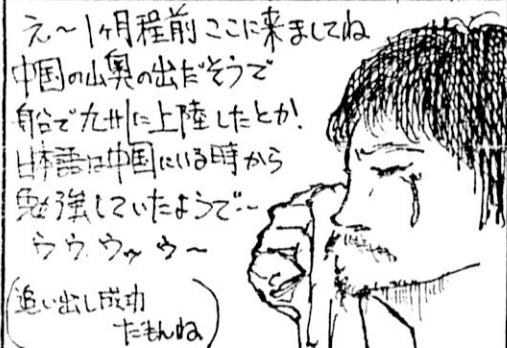 え～1ヶ月程前ここに来ましてね
中国の山奥の出だそうで
船で九州に上陸したとか!
日本語は中国にいる時から
勉強していたようで～
ウウウッゥ～
(追い出し成功
だもんね)